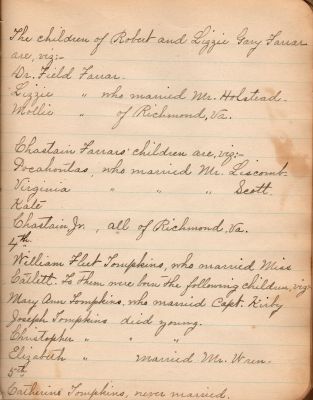 The children of Robert and Lizzie Gary Farrar
are, viz:-
Dr. Field Farrar.
Lizzie " who married Mr. Holstead.
Mollie " of Richmond, Va.
Chastain Farrars' children are, viz:-
Pocahontas, who married Mr. Liscomb.
Virginia " " " Scott.
Kate
Chastain Jr., all of Richmond, Va.
4th.
William Fleet Tompkins, who married Miss
Catlett. To them were born the following children, viz-
Mary Ann Tompkins, who married Capt. Kirby
Joseph Tompkins died young.
Christopher " " "
Elizabeth " married Mr. Wren.
5th.
Catherine Tompkins, never married.